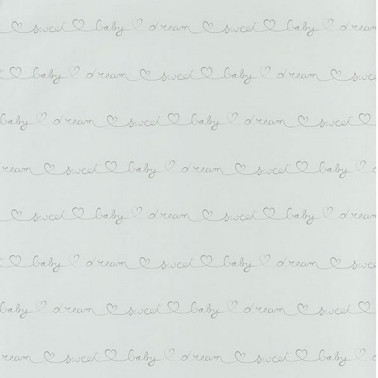 sweet baby dream sweet baby dream
baby dream sweet baby dream sweet
baby dream sweet baby dream sweet
dream sweet baby dream sweet baby
sweet baby dream sweet baby dream
baby dream sweet baby dream sweet
baby dream sweet baby dream sweet
ream sweet baby dream sweet baby